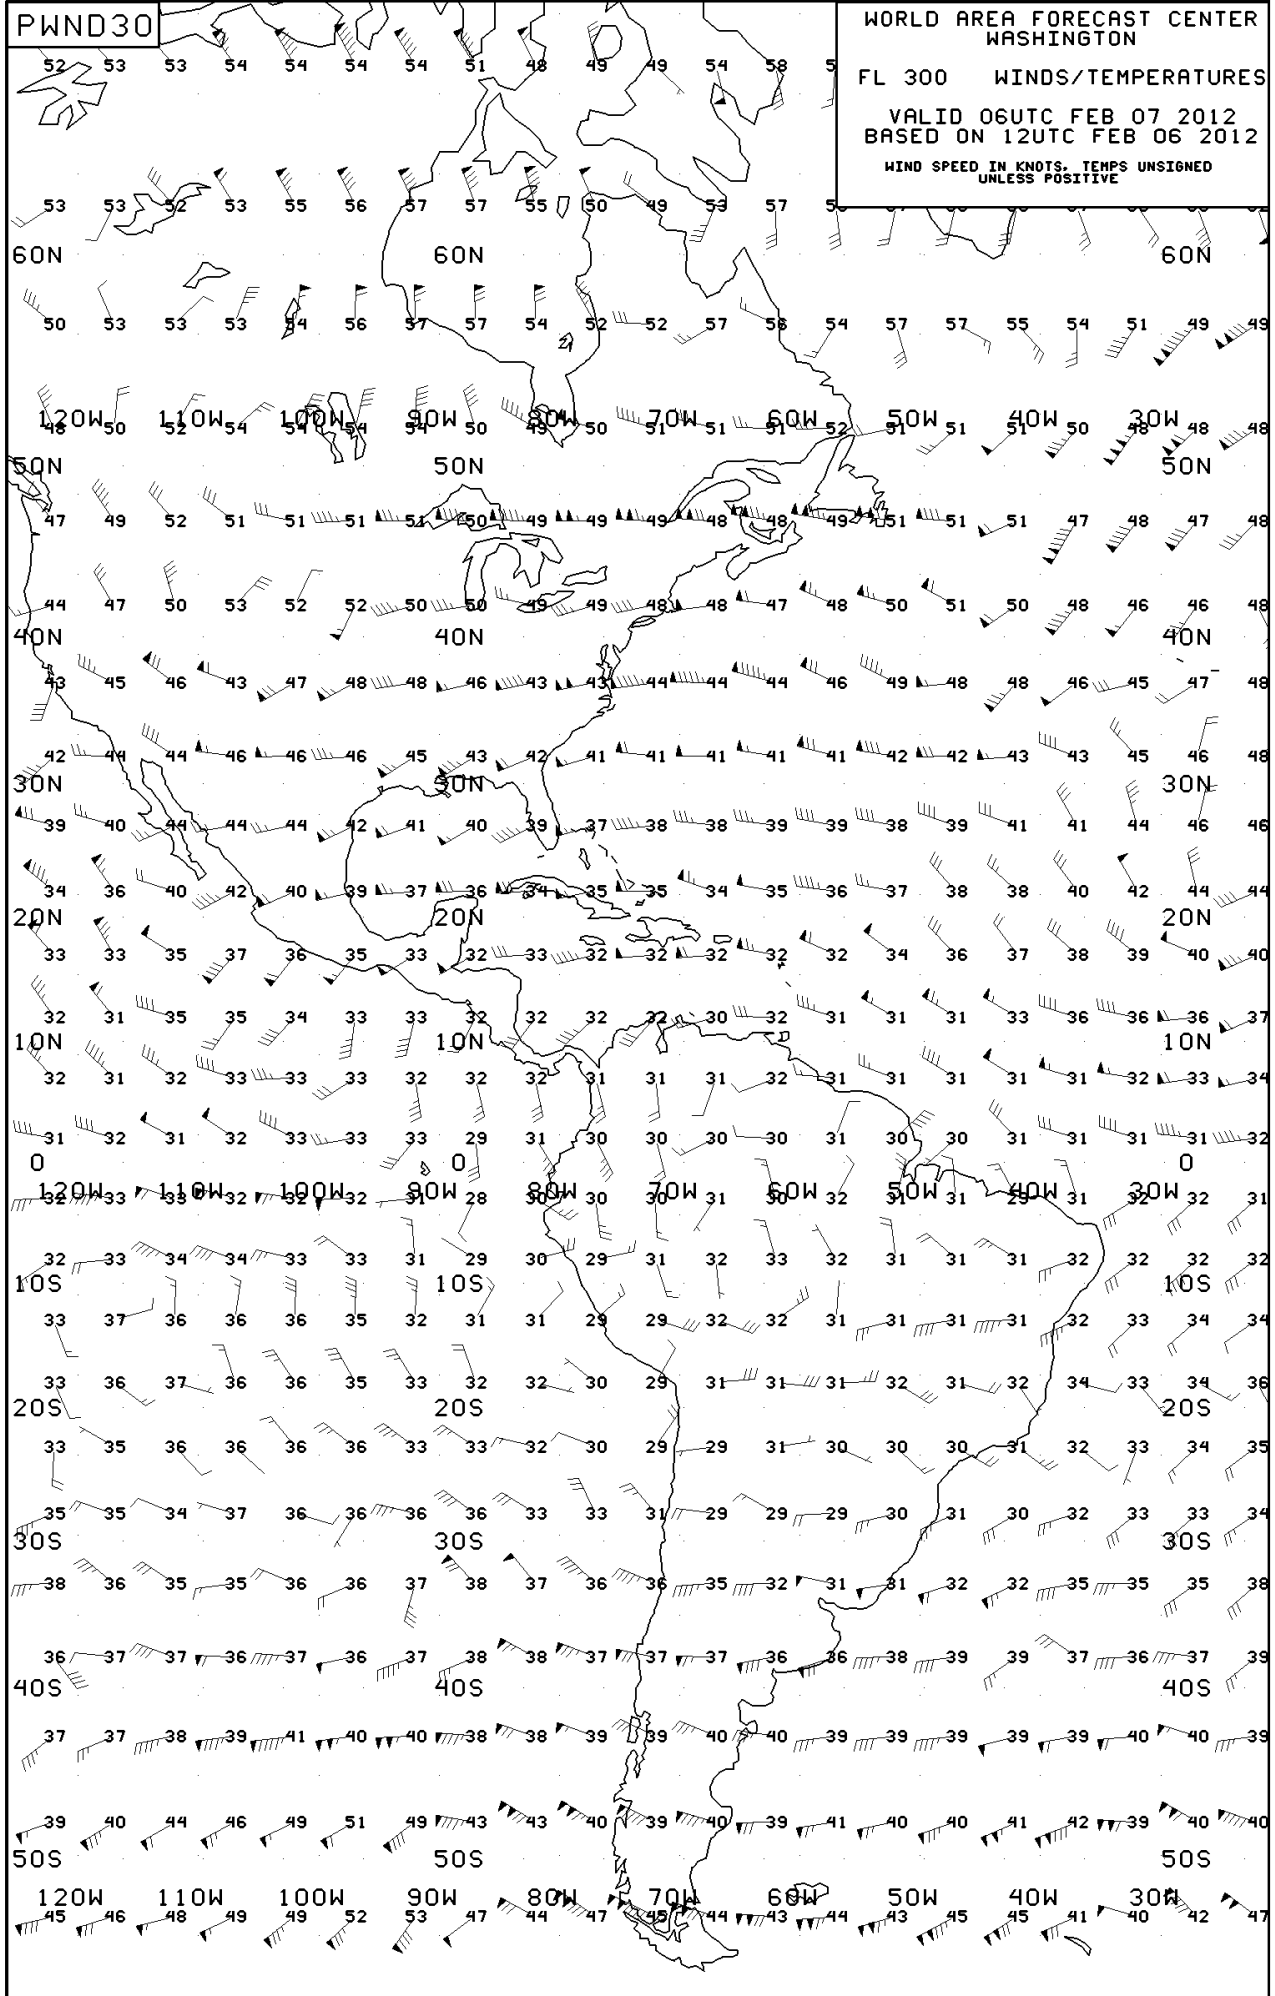 PWND30
WORLD AREA FORECAST CENTER
WASHINGTON
FL 300 WINDS/TEMPERATURES
VALID 06UTC FEB 07 2012
BASED ON 12UTC FEB 06 2012
WIND SPEED IN KNOTS, TEMPS UNSIGNED
UNLESS POSITIVE
52 53 53 54 54 54 54 51 48 49 49 54 58
53 53 52 53 55 56 57 57 55 50 49 53 57
60N 60N 60N
50 53 53 53 54 56 57 57 54 52 52 57 56 54 57 57 55 54 51 49 49
120W 110W 100W 90W 80W 70W 60W 50W 40W 30W
48 50 52 54 54 54 54 50 49 50 51 51 51 52 51 51 51 50 48 48 48
50N 50N 50N
47 49 52 51 51 51 51 50 49 49 49 48 48 49 51 51 51 47 48 47 48
44 47 50 53 52 52 50 50 49 49 48 48 47 48 50 51 50 48 46 46 48
40N 40N 40N
43 45 46 43 47 48 48 46 43 43 44 44 44 46 49 48 48 46 45 47 48
42 44 44 46 46 46 45 43 42 41 41 41 41 41 42 42 43 43 45 46 48
30N 30N 30N
39 40 44 44 44 42 41 40 39 37 38 38 39 39 38 39 41 41 44 46 46
34 36 40 42 40 39 37 36 34 35 35 34 35 36 37 38 38 40 42 44 44
20N 20N 20N
33 33 35 37 36 35 33 32 33 32 32 32 32 32 34 36 37 38 39 40 40
32 31 35 35 34 33 33 32 32 32 32 30 32 31 31 31 33 36 36 36 37
10N 10N 10N
32 31 32 33 33 33 32 32 32 31 31 31 32 31 31 31 31 31 32 33 34
31 32 31 32 33 33 33 29 31 30 30 30 30 31 30 30 31 31 31 31 32
0 0 0
120W 110W 100W 90W 80W 70W 60W 50W 40W 30W
32 33 33 32 32 32 31 28 30 30 30 31 30 32 31 31 29 31 32 32 31
32 33 34 34 33 33 31 29 30 29 31 32 33 32 31 31 31 32 32 32 32
10S 10S 10S
33 37 36 36 36 35 32 31 31 29 29 32 32 31 31 31 31 32 33 34 34
33 36 37 36 36 35 33 32 32 30 29 31 31 31 32 31 32 34 33 34 36
20S 20S 20S
33 35 36 36 36 36 33 33 32 30 29 29 31 30 30 30 31 32 33 34 35
35 35 34 37 36 36 36 36 33 33 31 29 29 29 30 31 30 32 33 33 34
30S 30S 30S
38 36 35 35 36 36 37 38 37 36 36 35 32 31 31 32 32 35 35 35 38
36 37 37 36 37 36 37 38 38 37 37 37 36 36 38 39 39 37 36 37 39
40S 40S 40S
37 37 38 39 41 40 40 38 38 39 39 40 40 39 39 39 39 39 40 40 39
39 40 44 46 49 51 49 43 43 40 39 40 39 41 40 40 41 42 39 40 40
50S 50S 50S
120W 110W 100W 90W 80W 70W 60W 50W 40W 30W
45 46 48 49 49 52 53 47 44 47 45 44 43 44 43 45 45 41 40 42 47